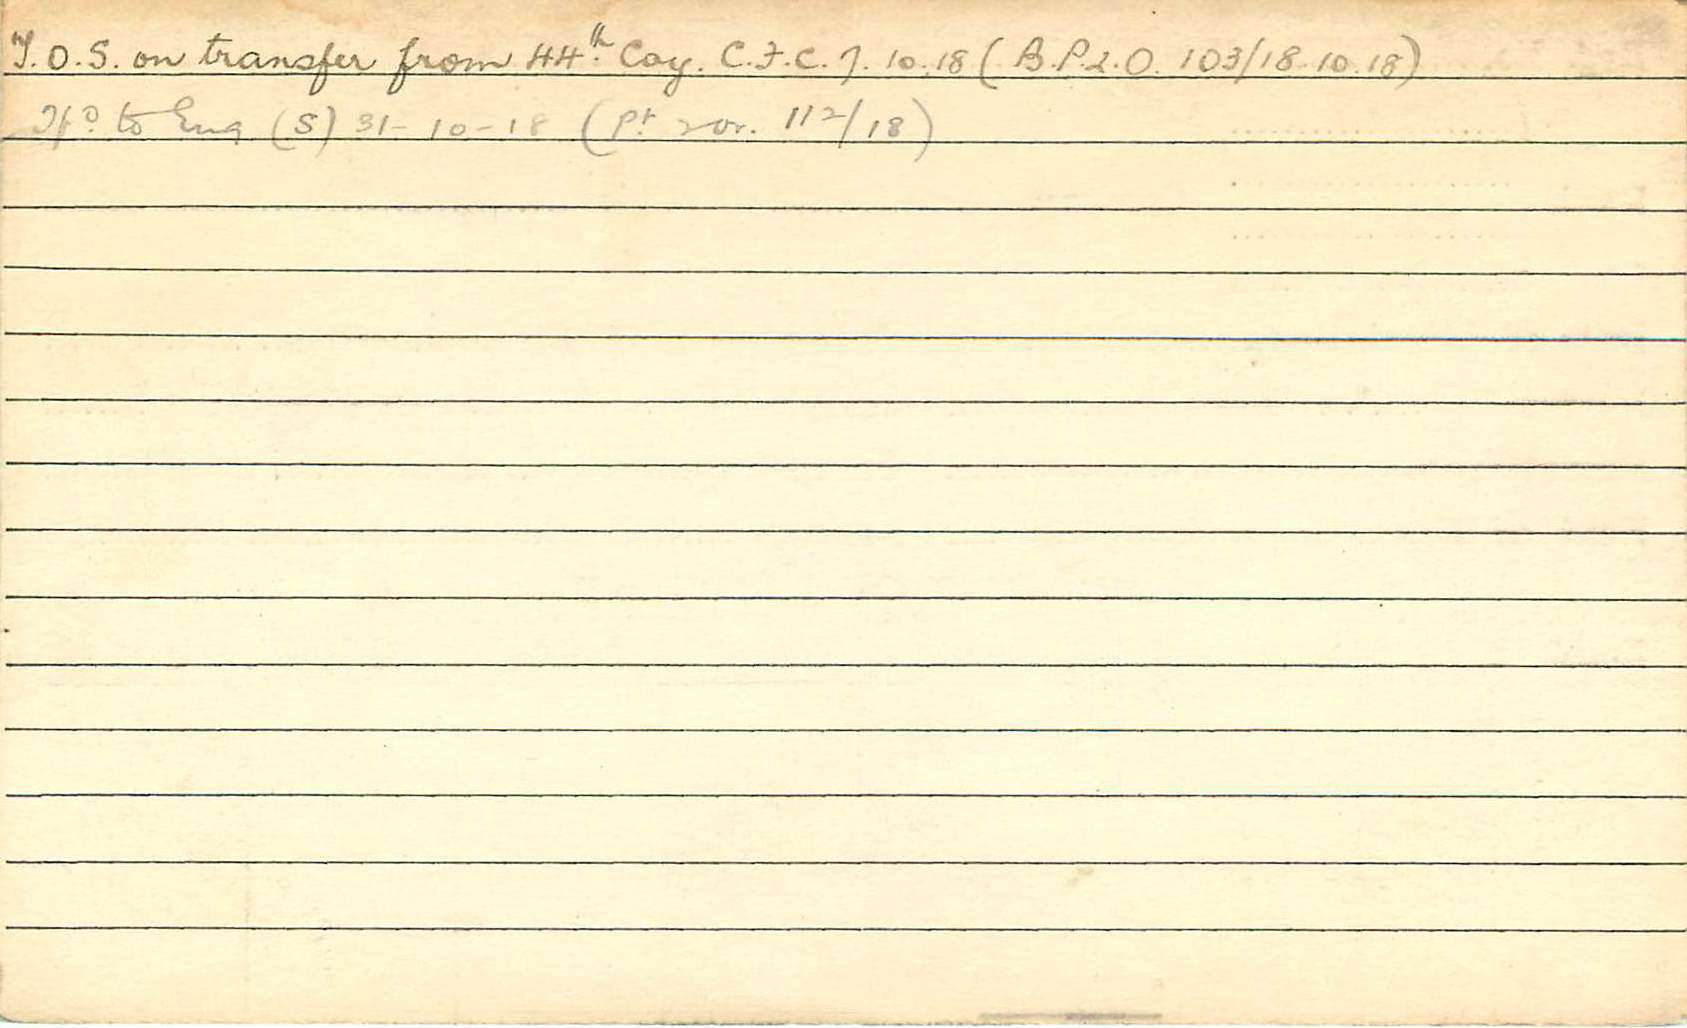 T.O.S. on transfer from 44th Coy. C.F.C. 7.10.18 (B.P.2.O. 103/18.10.18)
Tfd to Eng (S) 31-10-18 (Pt 2 Or. 112/18)